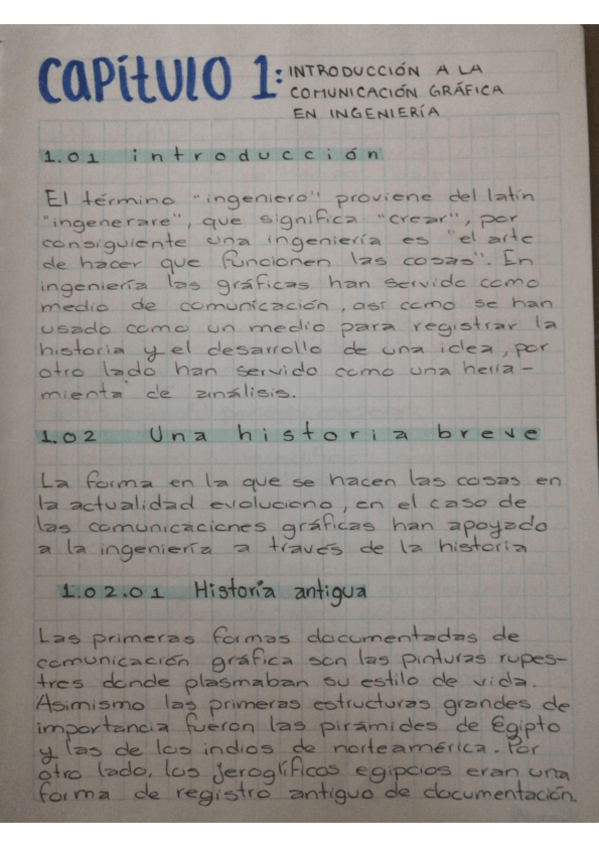 CAPÍTULO 1: INTRODUCCIÓN A LA
COMUNICACIÓN GRÁFICA
EN INGENIERÍA
1.01 introducción
El término "ingeniero" proviene del latín
"ingenerare", que significa "crear", por
consiguiente una ingeniería es "el arte
de hacer que funcionen las cosas". En
ingeniería las gráficas han servido como
medio de comunicación, así como se han
usado como un medio para registrar la
historia y el desarrollo de una idea, por
otro lado han servido como una herra-
mienta de análisis.
1.02 Una historia breve
La forma en la que se hacen las cosas en
la actualidad evoluciono, en el caso de
las comunicaciones gráficas han apoyado
a la ingeniería a través de la historia
1.02.01 Historia antigua
Las primeras formas documentadas de
comunicación gráfica son las pinturas rupes-
tres donde plasmaban su estilo de vida.
Asimismo las primeras estructuras grandes de
importancia fueron las pirámides de Egipto
y las de los indios de norteamérica. Por
otro lado, los jeroglíficos egipcios eran una
forma de registro antiguo de documentación.